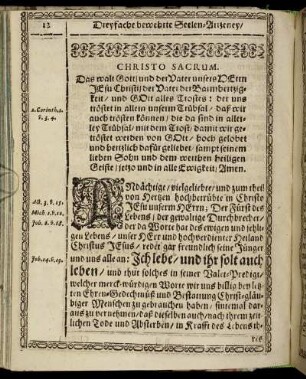 12 Dreyfache bewehrte Seelen-Artzeney/
CHRISTO SACRUM.
Das walt Gott/ und der Vater unsers HErrn
JEsu Christi/ der Vater der Barmhertzig-
keit/ und GOtt alles Trostes: der uns
tröstet in allem unserm Trübsal/ daß wir
auch trösten können/ die da sind in aller-
ley Trübsal/ mit dem Trost/ damit wir ge-
tröstet werden von GOtt/ hoch gelobet
und hertzlich dafür geliebet/ sampt seinem
lieben Sohn und dem werthen heiligen
Geiste/ jetzo und in alle Ewigkeit/ Amen.
2. Corinth. 1.
v. 3. 4.
ANdächtige/ vielgeliebte/ und zum theil
von Hertzen hochbetrübte in Christo
JEsu unserm HErrn; Der Fürst des
Lebens/ der gewaltige Durchbrecher/
der da Worte hat des ewigen und selig-
gen Lebens/ unser HErr und hochverdienter Heiland
Christus JEsus/ redet gar freundlich seine Jünger
und uns alle an: Ich lebe/ und ihr solt auch
leben/ und thut solches in seiner Valet-Predigt/
welcher merck-würdigen Worte wir uns billig bey letz-
ten Ehren-Gedechtnüß und Bestattung Christ-gläu-
biger Menschen zu gebrauchen haben/ einmal dar-
aus zu vernehmen/ daß dieselben auch/ nach ihrem zeit-
lichen Tode und Absterben/ in Krafft des Lebens ih-
res
Act. 3. v. 15.
Mich. 2. v. 13.
Joh. 6. v. 68.
Joh. 14. v. 19.